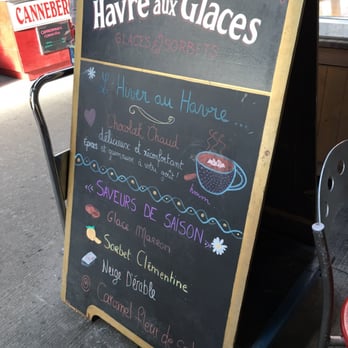 CANNEBER
Havre aux Glaces
GLACES & SORBETS
L'Hiver au Havre...
Chocolat Chaud
délicieux et réconfortant
épices et guimauve à votre goût!
hmm
SAVEURS DE SAISON
Glace Marron
Sorbet Clémentine
Neige D'érable
Caramel Fleur de